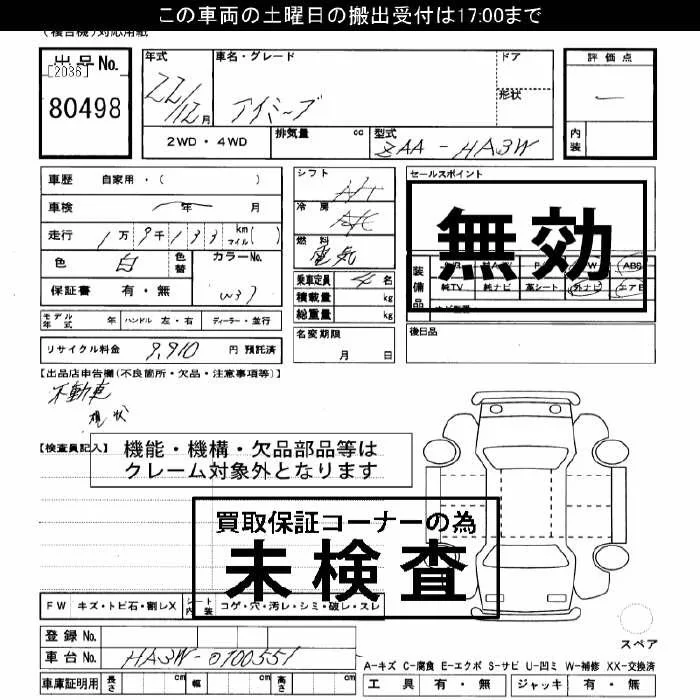 この車両の土曜日の搬出受付は17:00まで
(複合機)対応用紙
出品No. 年式 車名・グレード ドア 評価点
[2036]
80498 22/12月 アイミーブ 形状 ー
2WD・4WD 排気量 cc 型式 ZAA-HA3W 内装
車歴 自家用・( ) シフト A/T セールスポイント
車検 年 月 冷房 A/C
無効
走行 1万9千133 km マイル( ) 燃料 電気
色 白 色替 カラーNo. W37 乗車定員 4名 装備品 ABS
保証書 有・無 積載量 kg 純TV 純ナビ 革シート 外ナビ エアB
総重量 kg
モデル年式 年 ハンドル 左・右 ディーラー・並行 名変期限 月 日 後日品
リサイクル料金 9,910 円 預託済
【出品店申告欄(不良箇所・欠品・注意事項等)】
不動車
現状
【検査員記入】
機能・機構・欠品部品等は
クレーム対象外となります
買取保証コーナーの為
未検査
FW キズ・トビ石・割レX シート内装 コゲ・穴・汚レ・シミ・破レ・スレ
スペア
登録No.
車台No. HA3W-0100551
A-キズ C-腐食 E-エクボ S-サビ U-凹ミ W-補修 XX-交換済
車庫証明用 長さ cm 幅 cm 高さ cm 工具 有・無 ジャッキ 有・無